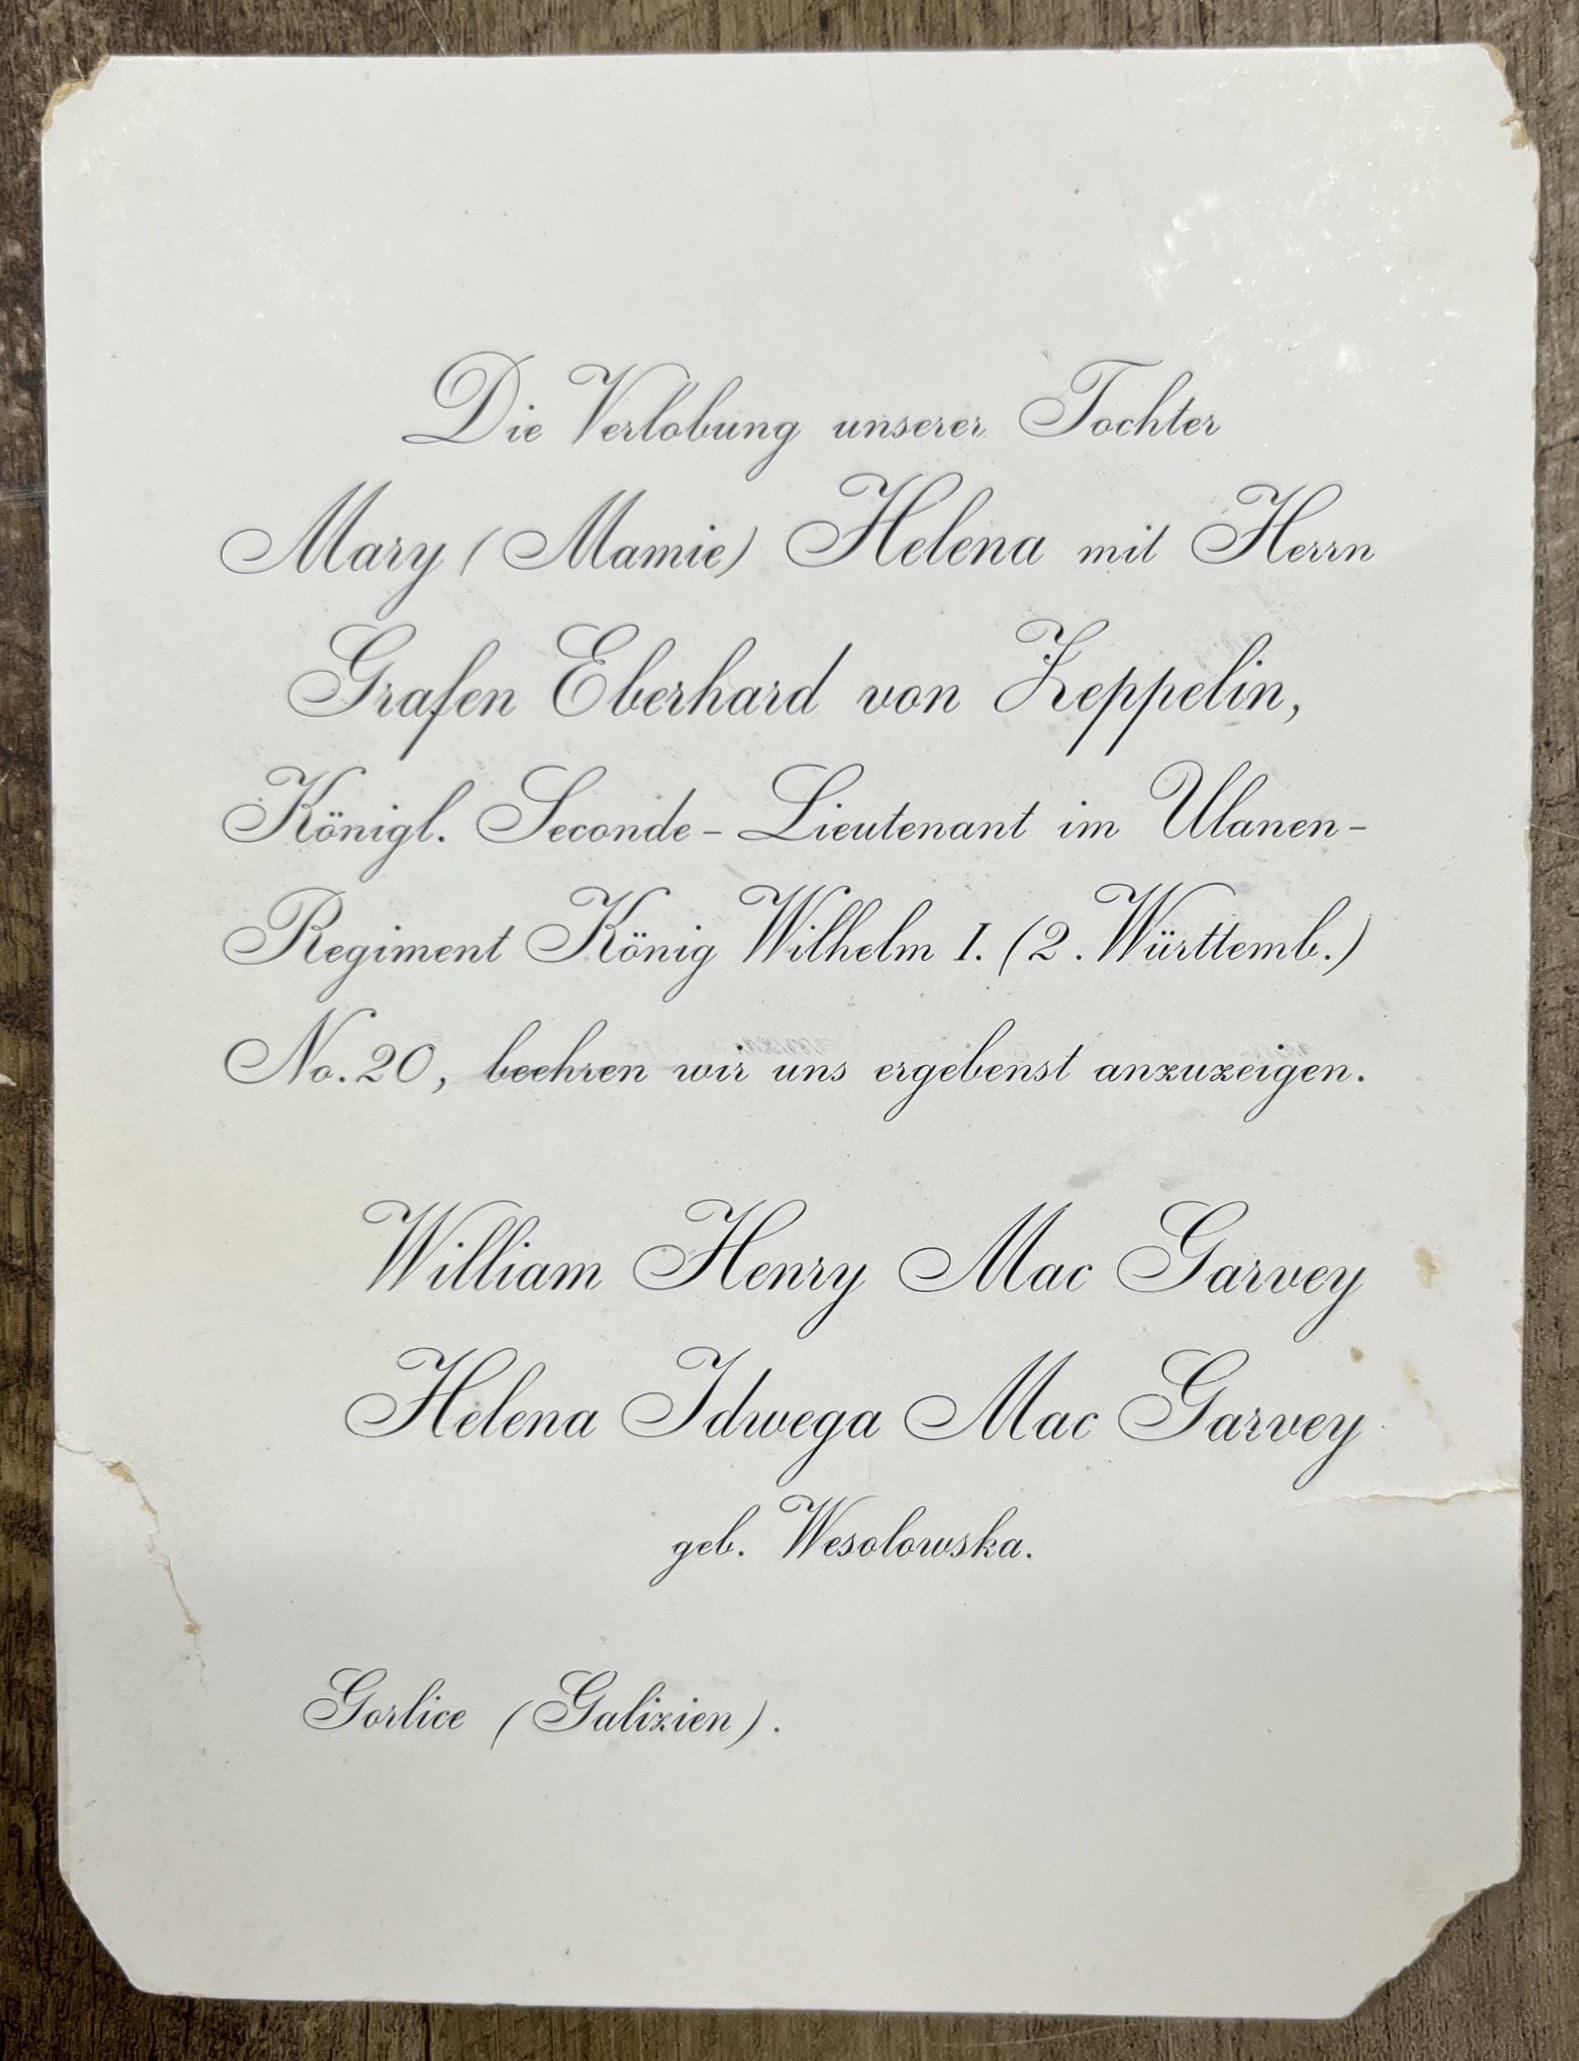 Die Verlobung unserer Tochter
Mary (Mamie) Helena mit Herrn
Grafen Eberhard von Zeppelin,
Königl. Seconde-Lieutenant im Ulanen-
Regiment König Wilhelm I. (2. Württemb.)
No. 20, beehren wir uns ergebenst anzuzeigen.
William Henry Mac Garvey
Helena Idwega Mac Garvey
geb. Wesolowska.
Gorlice (Galizien).